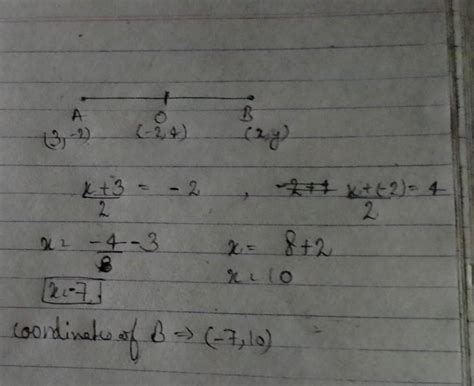 A O B
(3,-2) (-2,4) (x,y)
x+3/2 = -2 , x+(-2)/2 = 4
x = -4-3 x = 8+2
x = 10
x=-7
coordinates of B ⇒ (-7,10)